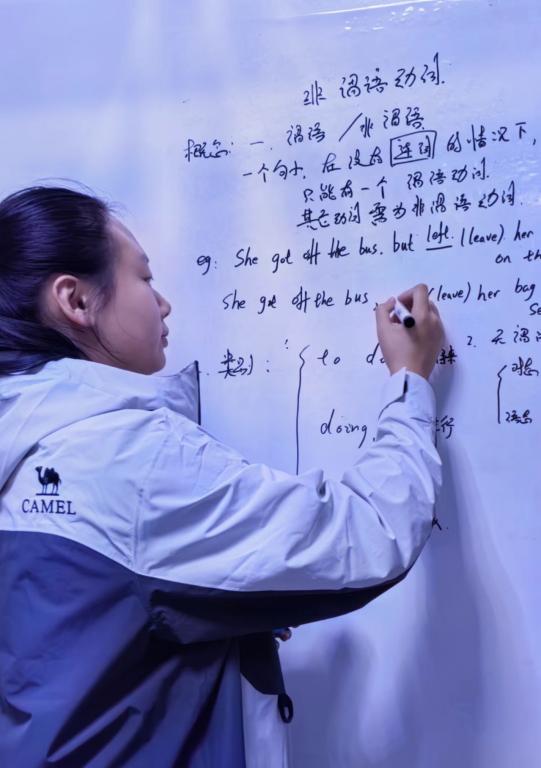 非谓语动词.
概念: 一. 谓语/非谓语
一个句中, 在没有 连词 的情况下,
只能有一个 谓语动词.
其它动词 需为非谓语动词.
eg: She got off the bus. but left (leave) her
on th
She got off the bus (leave) her bag
se
类别:
to do
2. 无谓语
时态
doing
语态
CAMEL